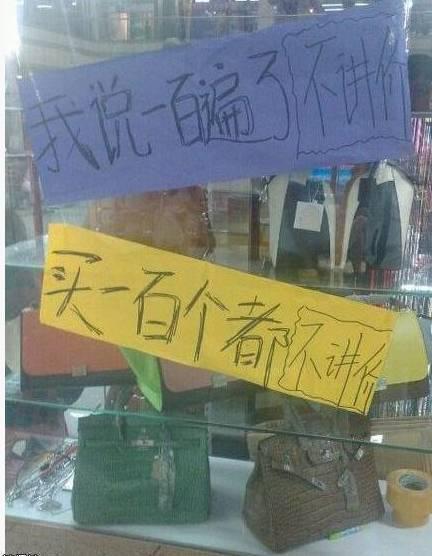 我说一百遍了不讲价
买一百个都不讲价